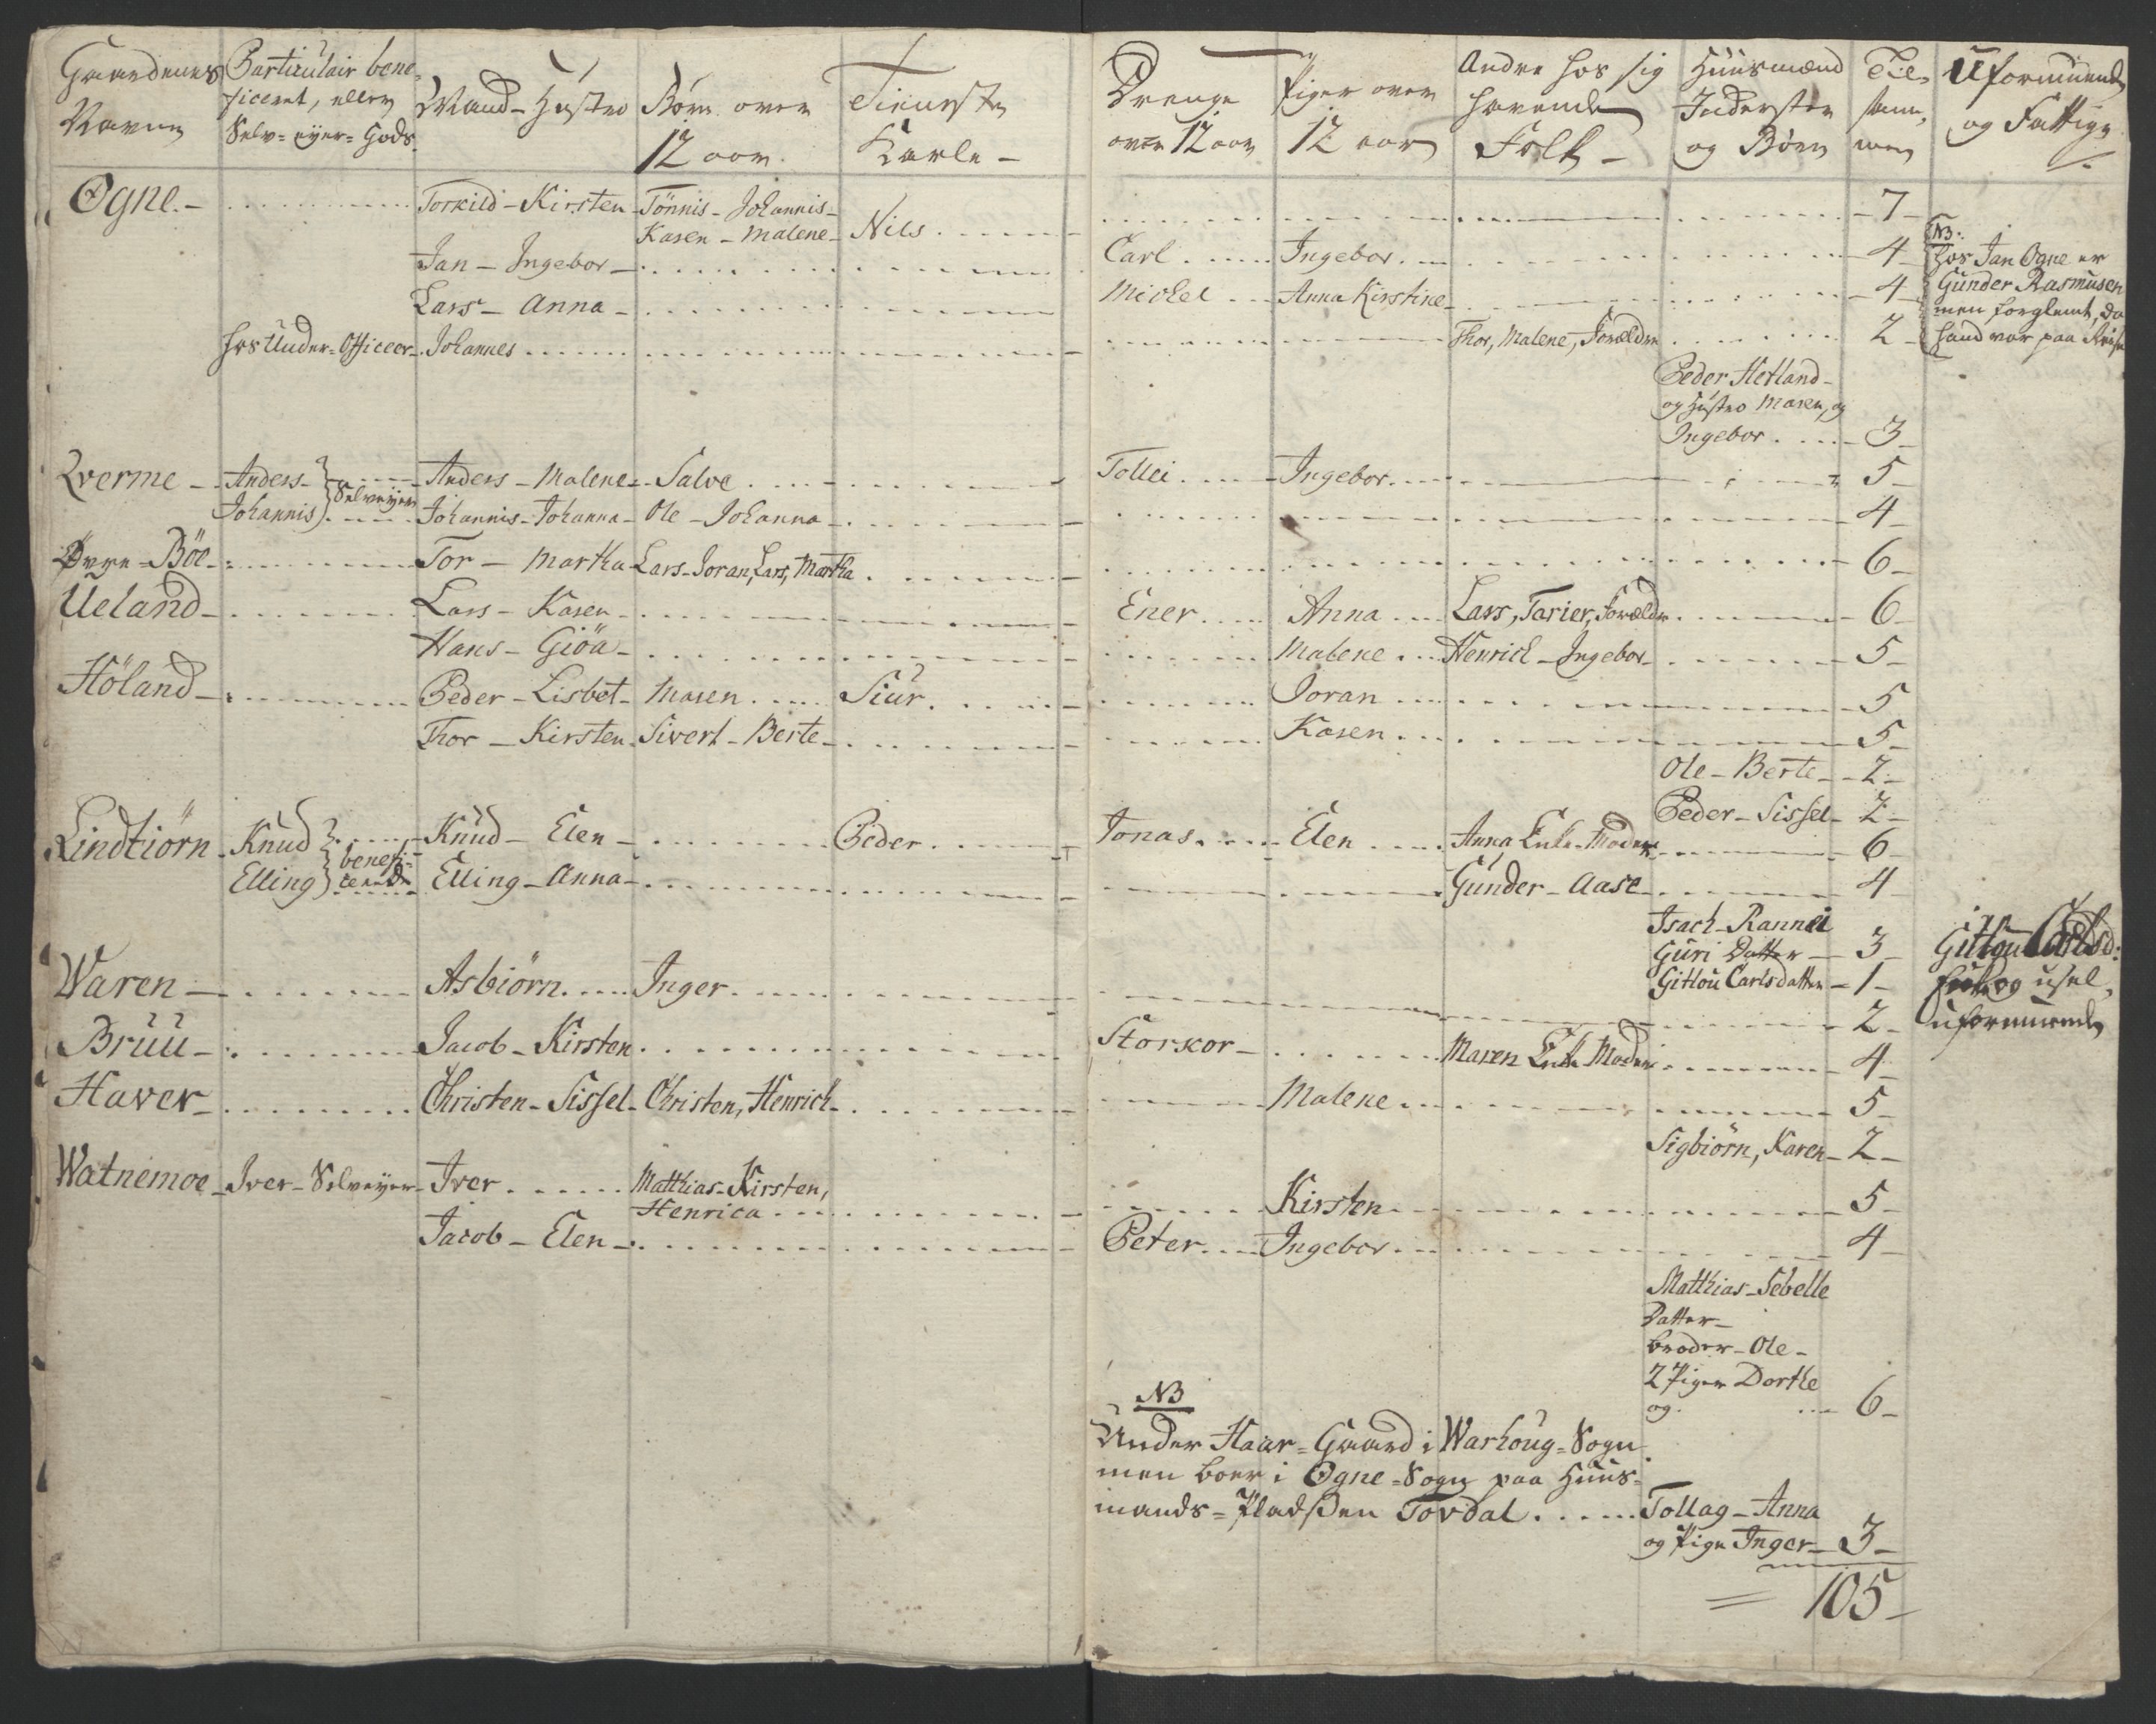 Gaardenes Navne
Particulair beneficeret, eller Selv-eyer-Gods.
Mand - Hustro
Børn over 12 aar.
Tieneste Karle -
Drenge over 12 aar
Piger over 12 aar
Andre hos sig havende Folk -
Huusmænd Inderster og Børn
Tilsammen
Uformuende og Fattige
Ogne. - Torkild - Kirsten - Tönnis - Johannis - - 7 -
Karen - Malene - Nils
Jan - Ingebor - Carl Ingebor. - 4 -
Lars - Anna - Michel Anna Kirstine - 4 -
NB:
hos Jan Ogne er
Gunder Rasmusen
men forglemt, da
hand var paa Reise
hos Under-Officeer - Johannes Thor, Malene, Forældre 2 -
Peder Hetland -
og Hustro Maren, og
Ingebor - 3 -
Qverme - Anders - Anders - Malene - Salve Tollei Ingebor. 5 -
Johannis Selveyer Johannis - Johanna - Ole - Johanna - 4 -
Øvre - Böe - Tor - Martha - Lars - Joran, Lars, Martha - 6 -
Ueland - Lars - Karen - Ener Anna Lars, Tarier, Forældre - 6 -
Hans - Giöa - Malene Henrich - Ingebor - 5 -
Höland - Peder - Lisbet - Maren Siur. Joran - 5 -
Thor - Kirsten - Sivert - Berte - Karen - 5 -
Ole - Berte - 2 -
Peder - Sissel - 2 -
Lindtiörn - Knud Knud - Elen - Peder Jonas Elen Anna Enke-Moder - 6 -
Elling beneficerede Elling - Anna - Gunder - Aase - 4 -
Isach - Rannei
Guri Datter - 3 -
Gitlou Carlsdatter - 1 -
Gitlou Carlsd:
og usel,
uformuende
Waren - Asbiörn Inger 2 -
Bruu - Jacob - Kirsten Storkor - Maren Enke Moder - 4 -
Haver - Christen - Sissel - Christen, Henrich - Malene - 5 -
Sigbiörn, Karen - 2 -
Watnemoe - Iver - Selveyer - Iver Matthias - Kirsten,
Henrica Kirsten - 5 -
Jacob - Elen - Peter Ingebor. - 4 -
Matthias - Sebelle
Datter -
broder - Ole -
2 Piger Dorthe
og. - 6 -
NB
Under Haar - Gaard i Warhoug - Sogn
men boer i Ogne - Sogn paa Huus-
mands - Pladsen Tovdal Tollag - Anna
og Pige Inger - 3 -
= 105 -